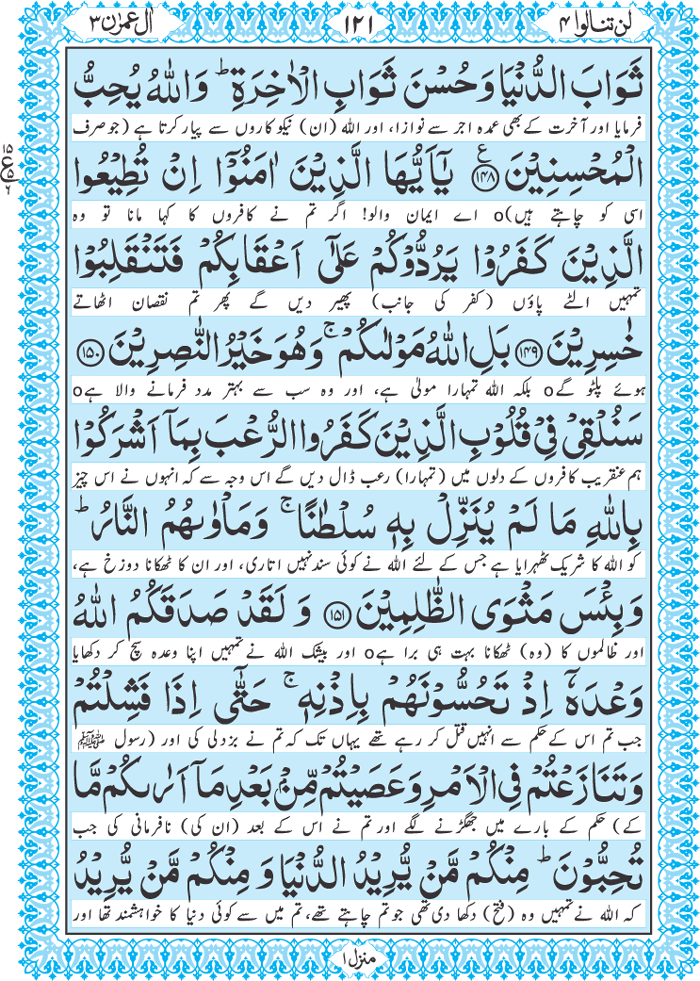 لن تنالوا ۴
۱۲۱
اٰل عمرٰن ۳
ثَوَابَ الدُّنْیَا وَ حُسْنَ ثَوَابِ الْاٰخِرَةِ ؕ وَاللّٰهُ یُحِبُّ
فرمایا اور آخرت کے بھی عمدہ اجر سے نوازا، اور اللہ (ان) نیکوکاروں سے پیار کرتا ہے (جو صرف
الْمُحْسِنِیْنَ ﴿۱۴۸﴾ ع یٰۤاَیُّهَا الَّذِیْنَ اٰمَنُوْۤا اِنْ تُطِیْعُوا
اسی کو چاہتے ہیں)o اے ایمان والو! اگر تم نے کافروں کا کہا مانا تو وہ
الَّذِیْنَ كَفَرُوْا یَرُدُّوْكُمْ عَلٰۤی اَعْقَابِكُمْ فَتَنْقَلِبُوْا
تمہیں الٹے پاؤں (کفر کی جانب) پھیر دیں گے پھر تم نقصان اٹھاتے
خٰسِرِیْنَ ﴿۱۴۹﴾ بَلِ اللّٰهُ مَوْلٰىكُمْ ۚ وَهُوَ خَیْرُ النّٰصِرِیْنَ ﴿۱۵۰﴾
ہوئے پلٹو گےo بلکہ اللہ تمہارا مولیٰ ہے، اور وہ سب سے بہتر مدد فرمانے والا ہےo
سَنُلْقِیْ فِیْ قُلُوْبِ الَّذِیْنَ كَفَرُوا الرُّعْبَ بِمَاۤ اَشْرَكُوْا
ہم عنقریب کافروں کے دلوں میں (تمہارا) رعب ڈال دیں گے اس وجہ سے کہ انہوں نے اس چیز
بِاللّٰهِ مَا لَمْ یُنَزِّلْ بِهٖ سُلْطٰنًا ۚ وَمَاْوٰىهُمُ النَّارُ ؕ
کو اللہ کا شریک ٹھہرایا ہے جس کے لئے اللہ نے کوئی سند نہیں اتاری، اور ان کا ٹھکانا دوزخ ہے،
وَبِئْسَ مَثْوَی الظّٰلِمِیْنَ ﴿۱۵۱﴾ وَ لَقَدْ صَدَقَكُمُ اللّٰهُ
اور ظالموں کا (وہ) ٹھکانا بہت ہی برا ہےo اور بیشک اللہ نے تمہیں اپنا وعدہ سچ کر دکھایا
وَعْدَهٗۤ اِذْ تَحُسُّوْنَهُمْ بِاِذْنِهٖ ۚ حَتّٰۤی اِذَا فَشِلْتُمْ
جب تم اس کے حکم سے انہیں قتل کر رہے تھے یہاں تک کہ تم نے بزدلی کی اور (رسول ﷺ
وَتَنَازَعْتُمْ فِی الْاَمْرِ وَعَصَیْتُمْ مِّنْۢ بَعْدِ مَاۤ اَرٰىكُمْ مَّا
کے) حکم کے بارے میں جھگڑنے لگے اور تم نے اس کے بعد (ان کی) نافرمانی کی جب
تُحِبُّوْنَ ؕ مِنْكُمْ مَّنْ یُّرِیْدُ الدُّنْیَا وَ مِنْكُمْ مَّنْ یُّرِیْدُ
کہ اللہ نے تمہیں وہ (فتح) دکھا دی تھی جو تم چاہتے تھے، تم میں سے کوئی دنیا کا خواہشمند تھا اور
منزل ۱